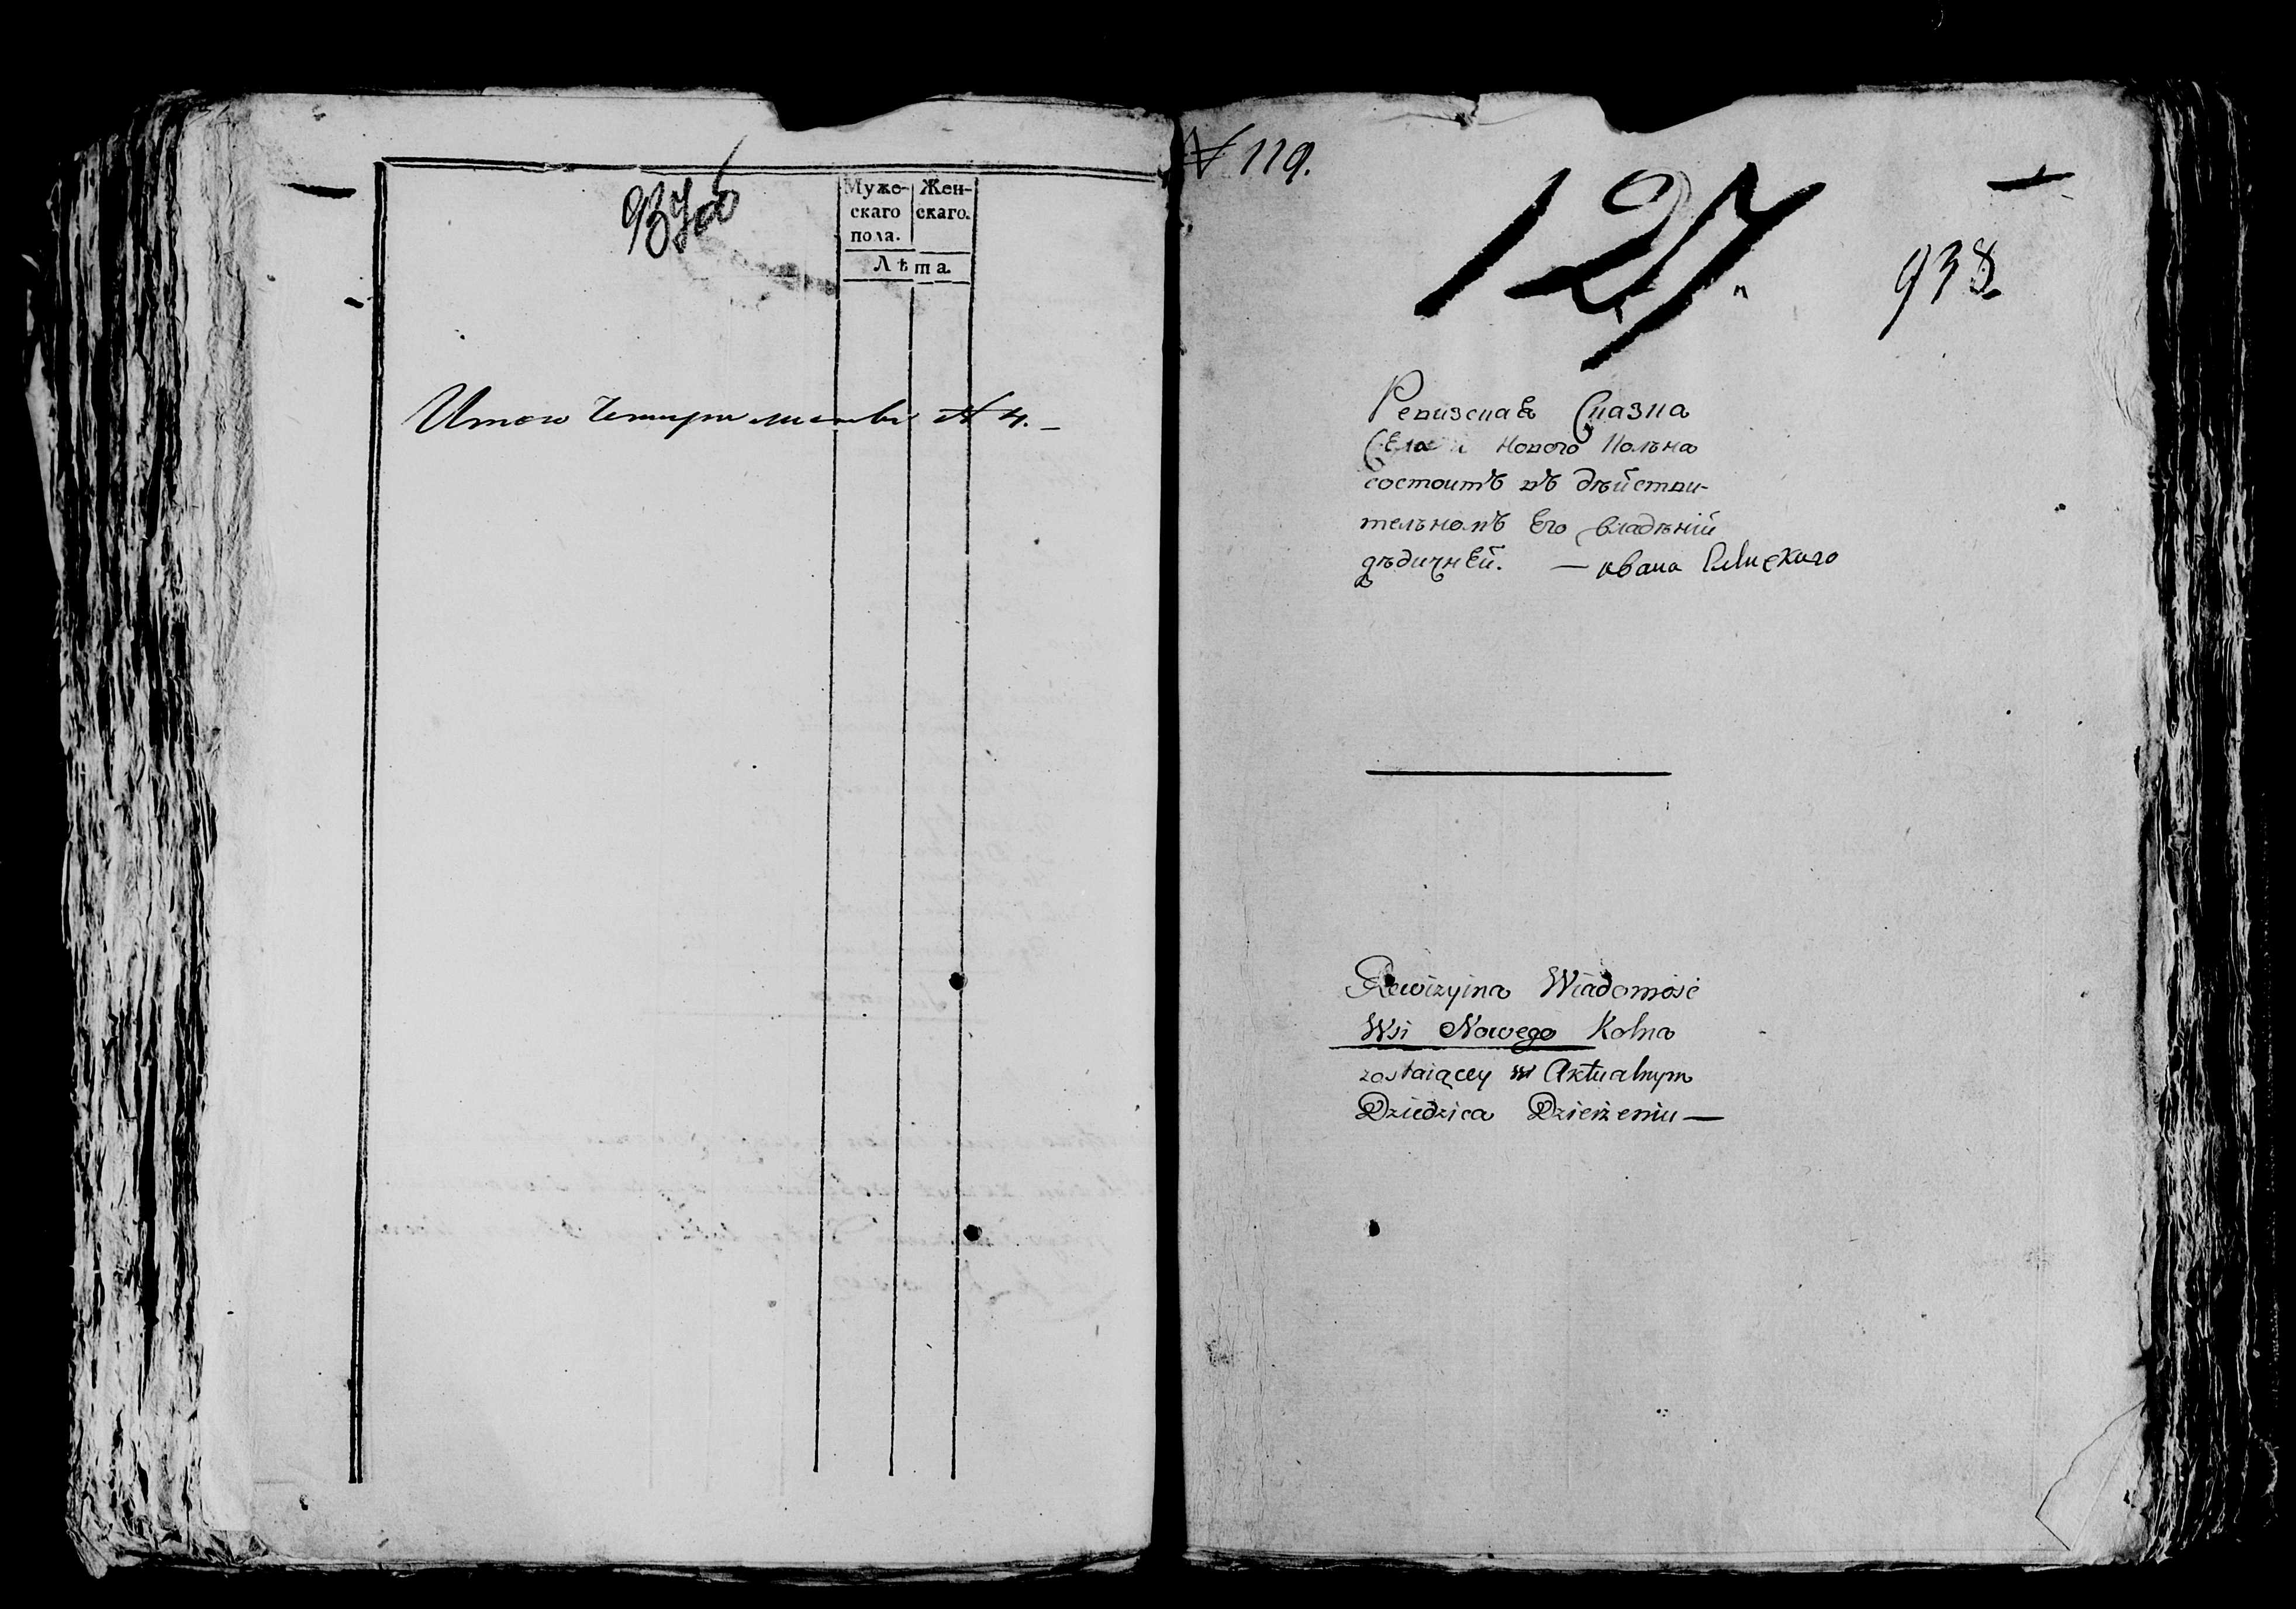 Муже- Жен-
скаго скаго.
пола.
Лѣта.
Итого Четыре листовъ № 4.
№ 119.
127.
938.
Ревизская Сказка
Села Нового Кольна
состоитъ въ дѣйстви-
тельномъ Его владѣній
дѣдичней. — Ивана
Rewizyina Wiadomość
Wsi Nowego Kolna
zostaiącey w Aktualnym
Dziedzica Dzierżeniu —